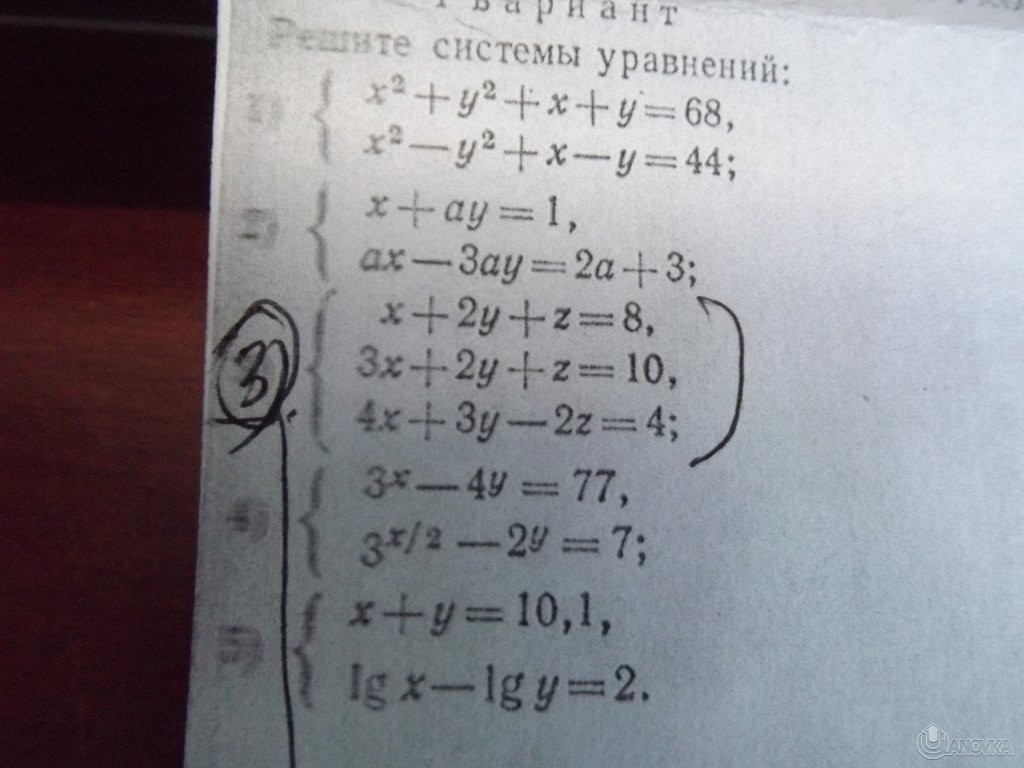 вариант
Решите системы уравнений:
1) x² + y² + x + y = 68,
x² — y² + x — y = 44;
2) x + ay = 1,
ax — 3ay = 2a + 3;
3 x + 2y + z = 8,
3x + 2y + z = 10,
4x + 3y — 2z = 4;
3ˣ — 4ʸ = 77,
3ˣᐟ² — 2ʸ = 7;
x + y = 10,1,
lg x — lg y = 2.
UANOVKA